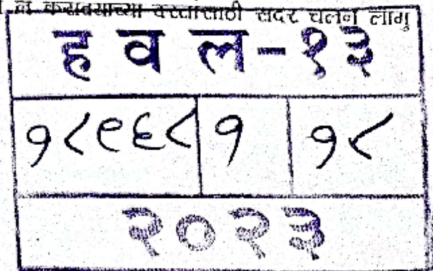 करावयाच्या दस्तांसाठी सदर चलन लागु
ह व ल-१३
१८९६८ १ १८
२०२३